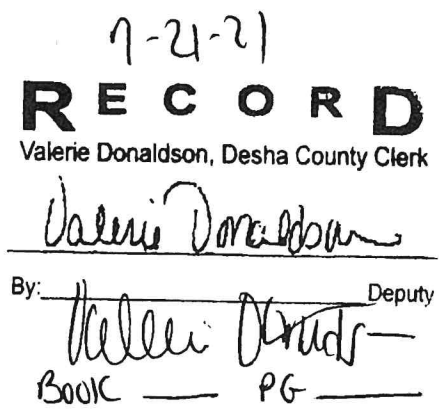 7-21-21
RECORD
Valerie Donaldson, Desha County Clerk
Valerie Donaldson
By: Deputy
BOOK ____ PG ____